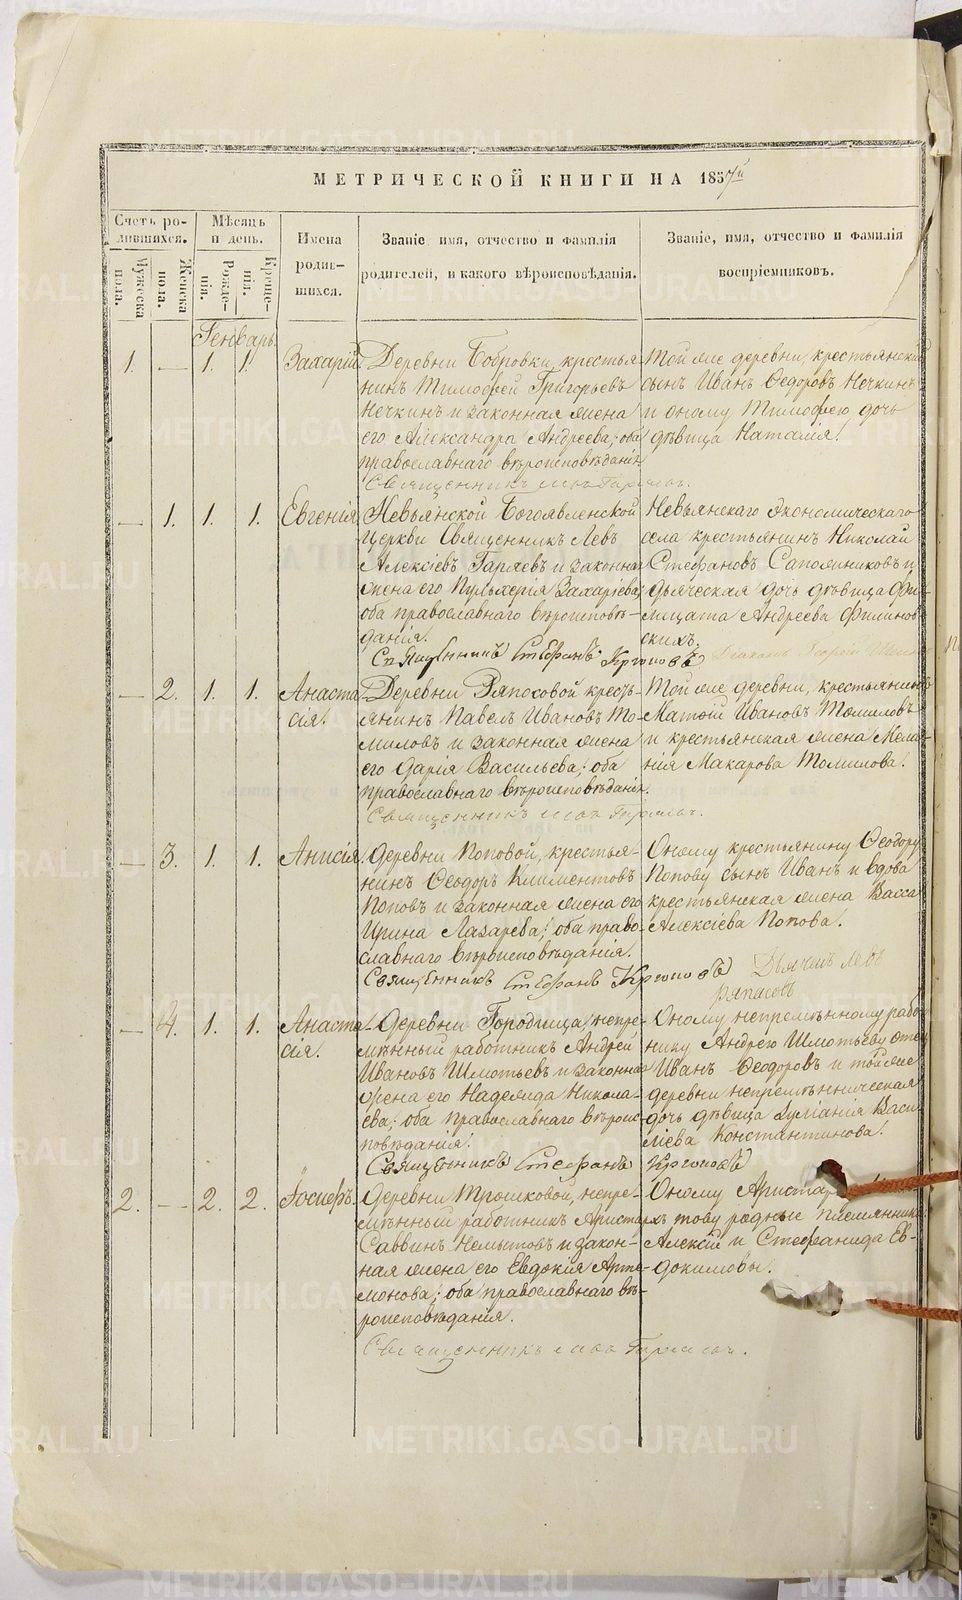 МЕТРИЧЕСКОЙ КНИГИ НА 1857й
Счетъ ро-
дившихся.
Мѣсяцъ
и день.
Имена
родив-
шихся.
Званіе имя, отчество и фамилія
родителей, и какого вѣроисповѣданія.
Званіе, имя, отчество и фамилія
воспріемниковъ.
Мужеска
пола.
Женска
пола.
Рожде-
нія.
Креще-
нія.
Генварь.
1. — 1. 1. Захарій.
Деревни Бобровки, крестья-
нинъ Тимофей Григорьевъ
Нечкинъ и законная жена
его Александра Андреева; оба
православнаго вѣроисповѣданія.
Священникъ Левъ Гаряевъ.
Той же деревни, крестьянскій
сынъ Иванъ Ѳедоровъ Нечкинъ
и оному Тимофею дочь
дѣвица Наталія.
— 1. 1. 1. Евгенія.
Невьянской Богоявленской
церкви Священникъ Левъ
Алексіевъ Гаряевъ и законная
жена его Пульхерія Захаріева;
оба православнаго вѣроисповѣ-
данія.
Священникъ Стефанъ
Невьянскаго Экономическаго
села крестьянинъ Николай
Стефановъ Сапожниковъ и
дьяческая дочь дѣвица Фи-
лицата Андреева Филинов-
скихъ.
— 2. 1. 1. Анаста-
сія.
Деревни Ряпосовой, кресть-
янинъ Павелъ Ивановъ То-
миловъ и законная жена
его Дарія Васильева; оба
православнаго вѣроисповѣданія.
Священникъ Левъ Гаряевъ.
Той же деревни, крестьянинъ
Матѳій Ивановъ Томиловъ
и крестьянская жена Мела-
нія Макарова Томилова.
— 3. 1. 1. Анисія.
Деревни Поповой, крестья-
нинъ Ѳеодоръ Климентовъ
Поповъ и законная жена его
Ирина Лазарева; оба право-
славнаго вѣроисповѣданія.
Священникъ Стефанъ
Оному крестьянину Ѳеодору
Попову сынъ Иванъ и вдова
крестьянская жена Васса
Алексіева Попова.
— 4. 1. 1. Анаста-
сія.
Деревни Городища, непре-
мѣнный работникъ Андрей
Ивановъ Шмотьевъ и законная
жена его Надежда Никола-
ева; оба православнаго вѣроис-
повѣданія.
Священникъ Стефанъ
Оному непремѣнному рабо-
нику Андрею Шмотьеву отец
Иванъ Ѳеодоровъ и той же
деревни непремѣнническая
дочь дѣвица Іуліанія Васи-
ліева Константинова.
2. — 2. 2. Іосифъ.
Деревни Трошковой, непре-
мѣнный работникъ Аристархъ
Саввинъ Немытовъ и закон-
ная жена его Евдокія Арте-
монова; оба православнаго вѣ-
роисповѣданія.
Священникъ Левъ Гаряевъ.
Оному
родные племянники
Алексій и Стефанида Ев-
докимовы.
METRIKI.GASO-URAL.RU